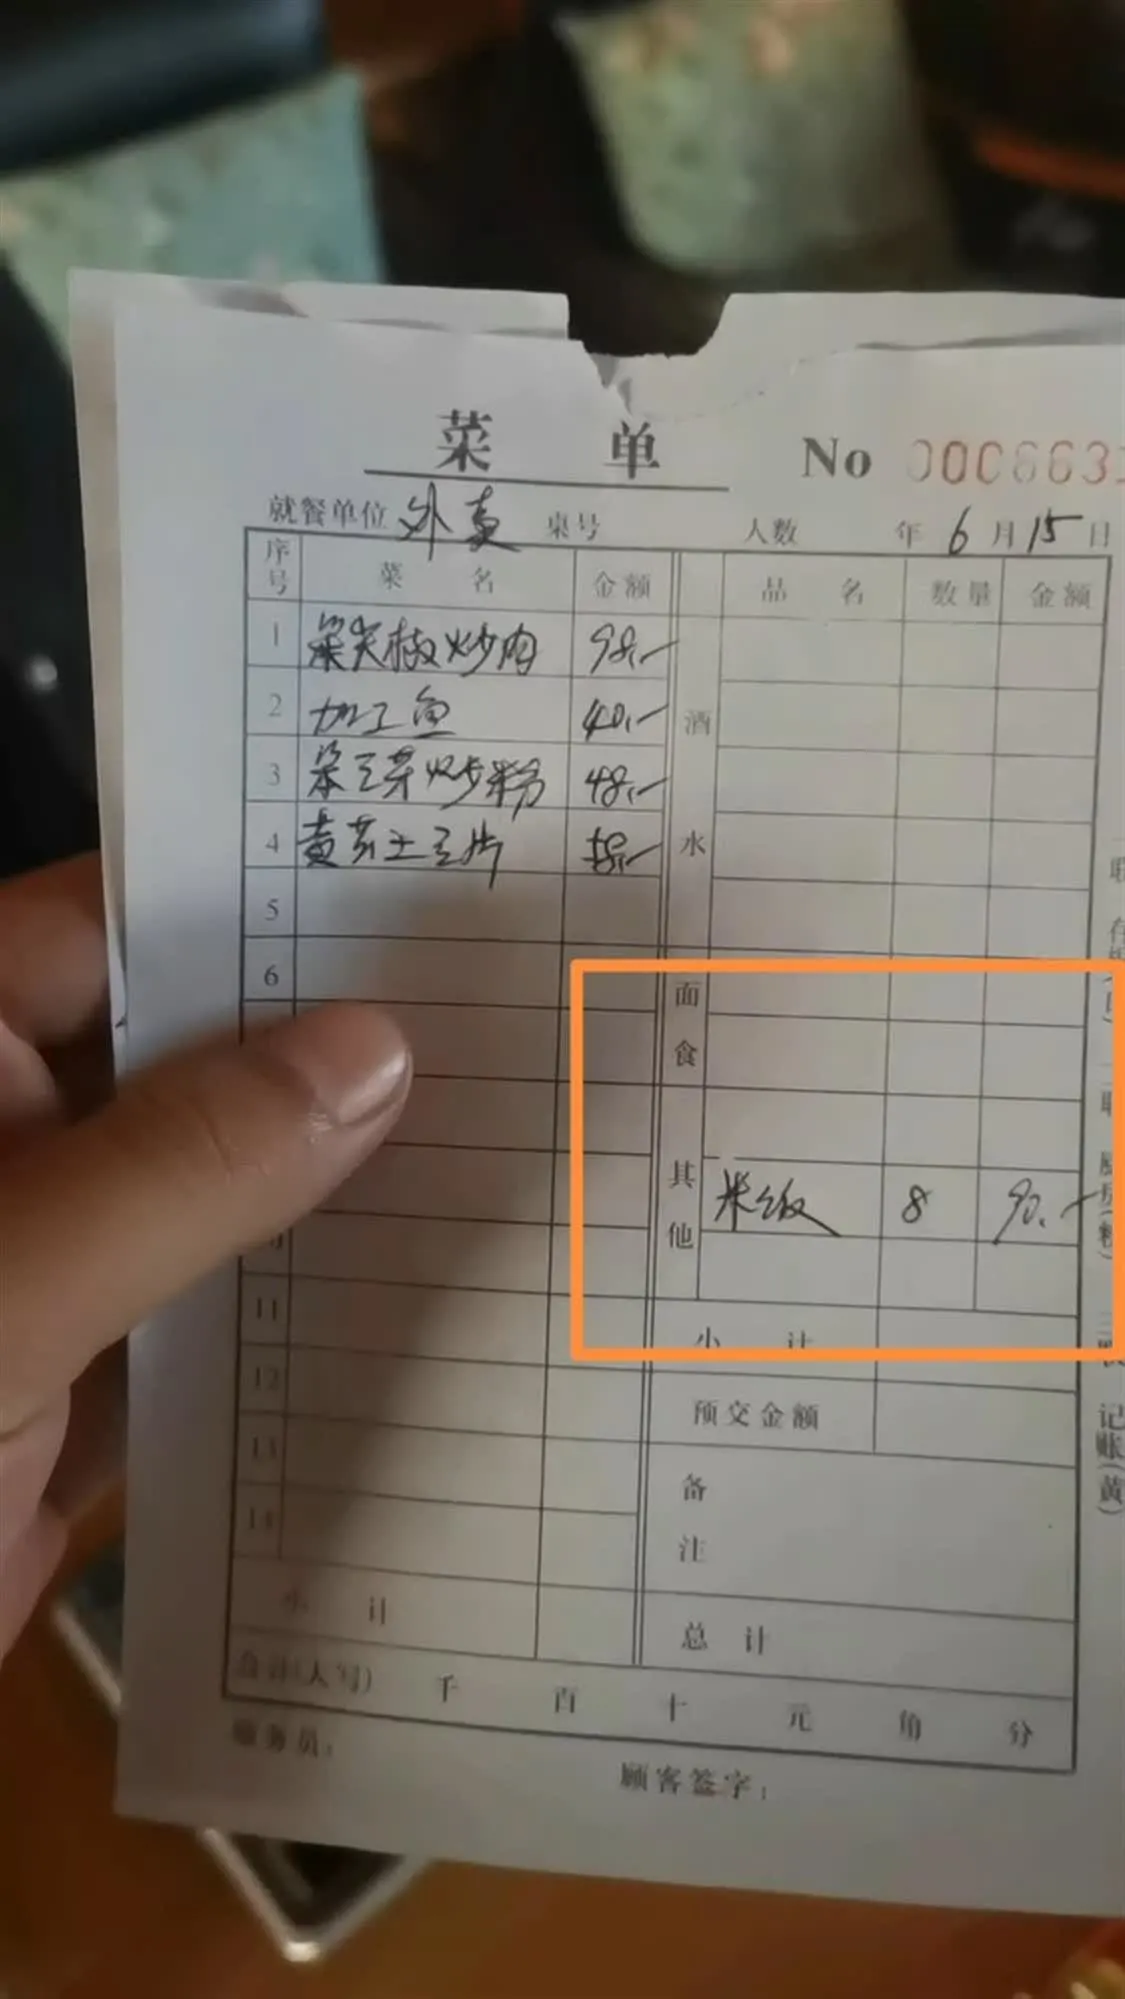 菜 单 No 0006633
就餐单位 外卖 桌号 人数 年 6 月 15 日
序号 菜 名 金额 品 名 数量 金额
1 笨尖椒炒肉 98.-
2 加工鱼 40.-
3 笨豆芽炒粉 48.-
4 黄芹土豆片
5
6
酒水
面食
其他
米饭 8 90.-
11
小 计
12
预交金额
13
备注
14
小 计
总 计
合计(大写) 千 百 十 元 角 分
服务员:
顾客签字:
记账(黄)